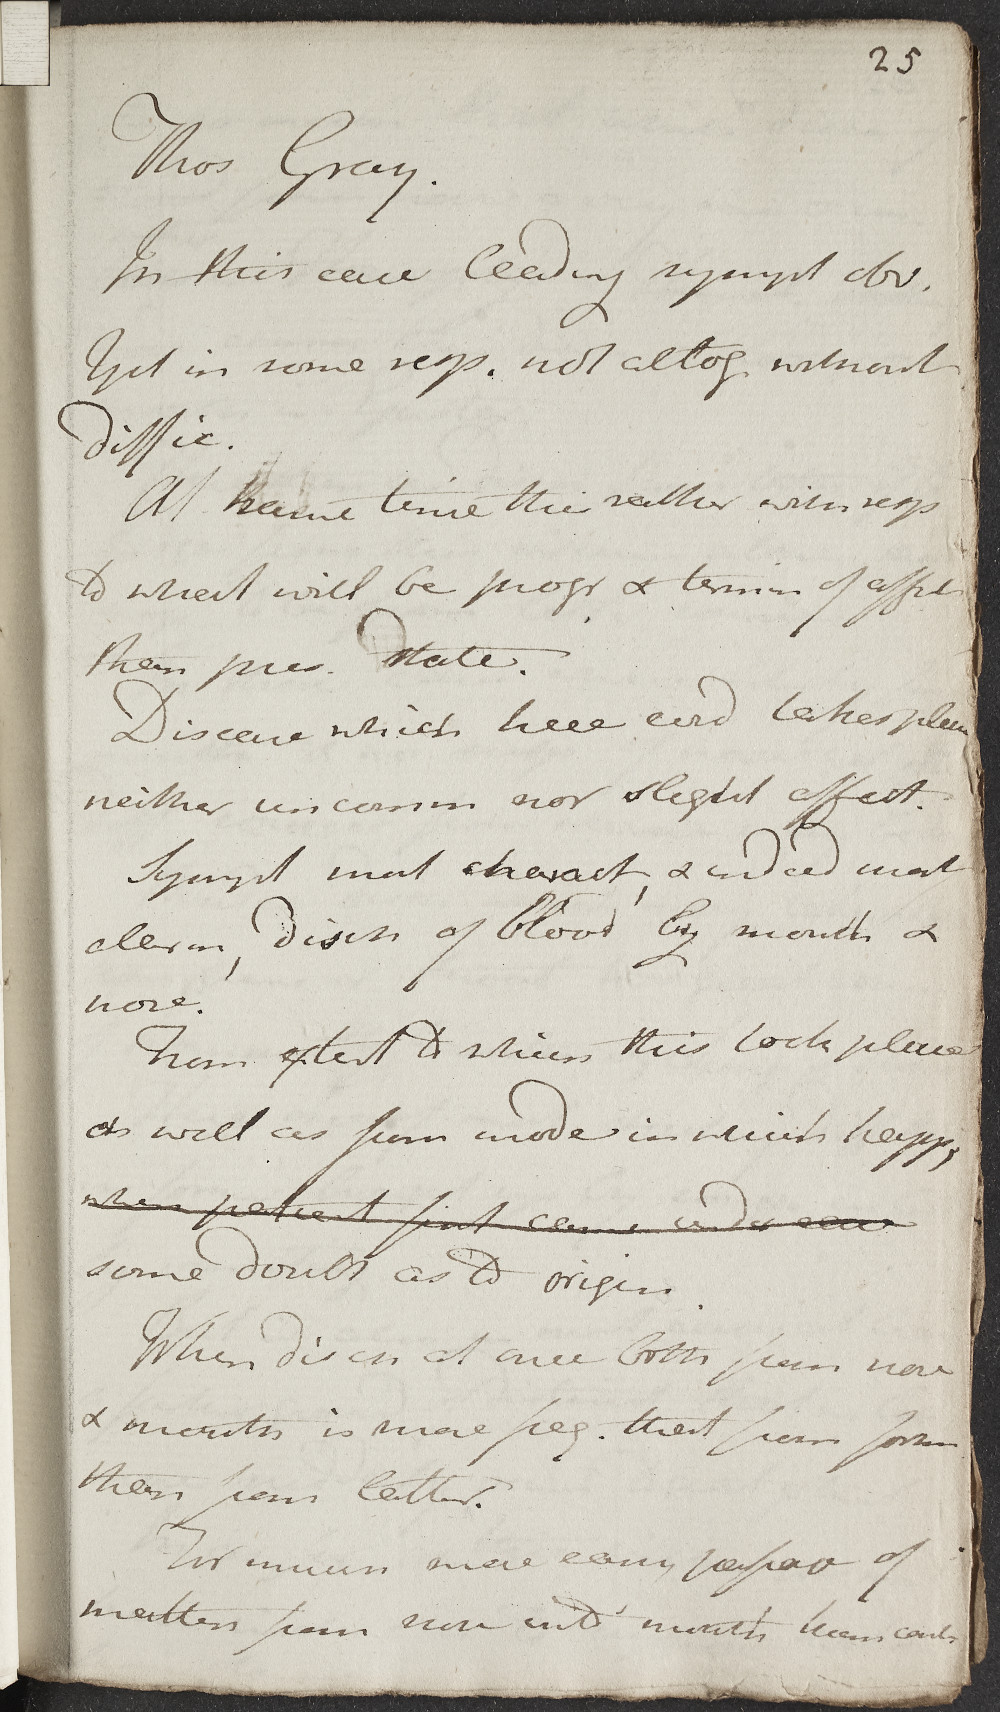 25
Thos Gray.
In this case leading sympt obv.
Yet in some resp. not altog without
diffic.
At same time this rather with resp
to what will be progr & termin of affect
than pres. state.
Disease which here cord takes place
neither uncomm nor slight affect.
Sympt most charact, & indeed most
alarm, disch of blood by mouth &
nose.
From extent to which this took place
as well as from mode in which happ,
when patient first came under care
some doubt as to origin.
When disch at once both from nose
& mouth is more freq. that from form
than from latter.
For much more easy passage of
matters from nose into mouth than cont